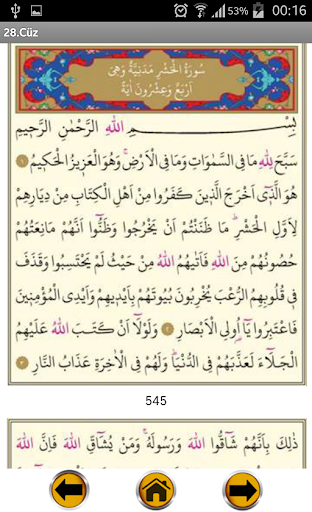 53% 00:16
28.Cüz
سُورَةُ الْحَشْرِ مَدَنِيَّةٌ وَهِيَ
اَرْبَعٌ وَعِشْرُونَ اٰيَةً
بِسْمِ اللّٰهِ الرَّحْمٰنِ الرَّحِيمِ
سَبَّحَ لِلّٰهِ مَا فِي السَّمٰوَاتِ وَمَا فِي الْاَرْضِۚ وَهُوَ الْعَزِيزُ الْحَكِيمُ ١
هُوَ الَّذِٓي اَخْرَجَ الَّذِينَ كَفَرُوا مِنْ اَهْلِ الْكِتَابِ مِنْ دِيَارِهِمْ
لِاَوَّلِ الْحَشْرِۜ مَا ظَنَنْتُمْ اَنْ يَخْرُجُوا وَظَنُّٓوا اَنَّهُمْ مَانِعَتُهُمْ
حُصُونُهُمْ مِنَ اللّٰهِ فَاَتٰيهُمُ اللّٰهُ مِنْ حَيْثُ لَمْ يَحْتَسِبُوا وَقَذَفَ
فِي قُلُوبِهِمُ الرُّعْبَ يُخْرِبُونَ بُيُوتَهُمْ بِاَيْدِيهِمْ وَاَيْدِي الْمُؤْمِنِينَ
فَاعْتَبِرُوا يَٓا اُولِي الْاَبْصَارِ ٢ وَلَوْلَٓا اَنْ كَتَبَ اللّٰهُ عَلَيْهِمُ
الْجَلَٓاءَ لَعَذَّبَهُمْ فِي الدُّنْيَاۜ وَلَهُمْ فِي الْاٰخِرَةِ عَذَابُ النَّارِ ٣
545
ذٰلِكَ بِاَنَّهُمْ شَٓاقُّوا اللّٰهَ وَرَسُولَهُۚ وَمَنْ يُشَٓاقِّ اللّٰهَ فَاِنَّ اللّٰهَ